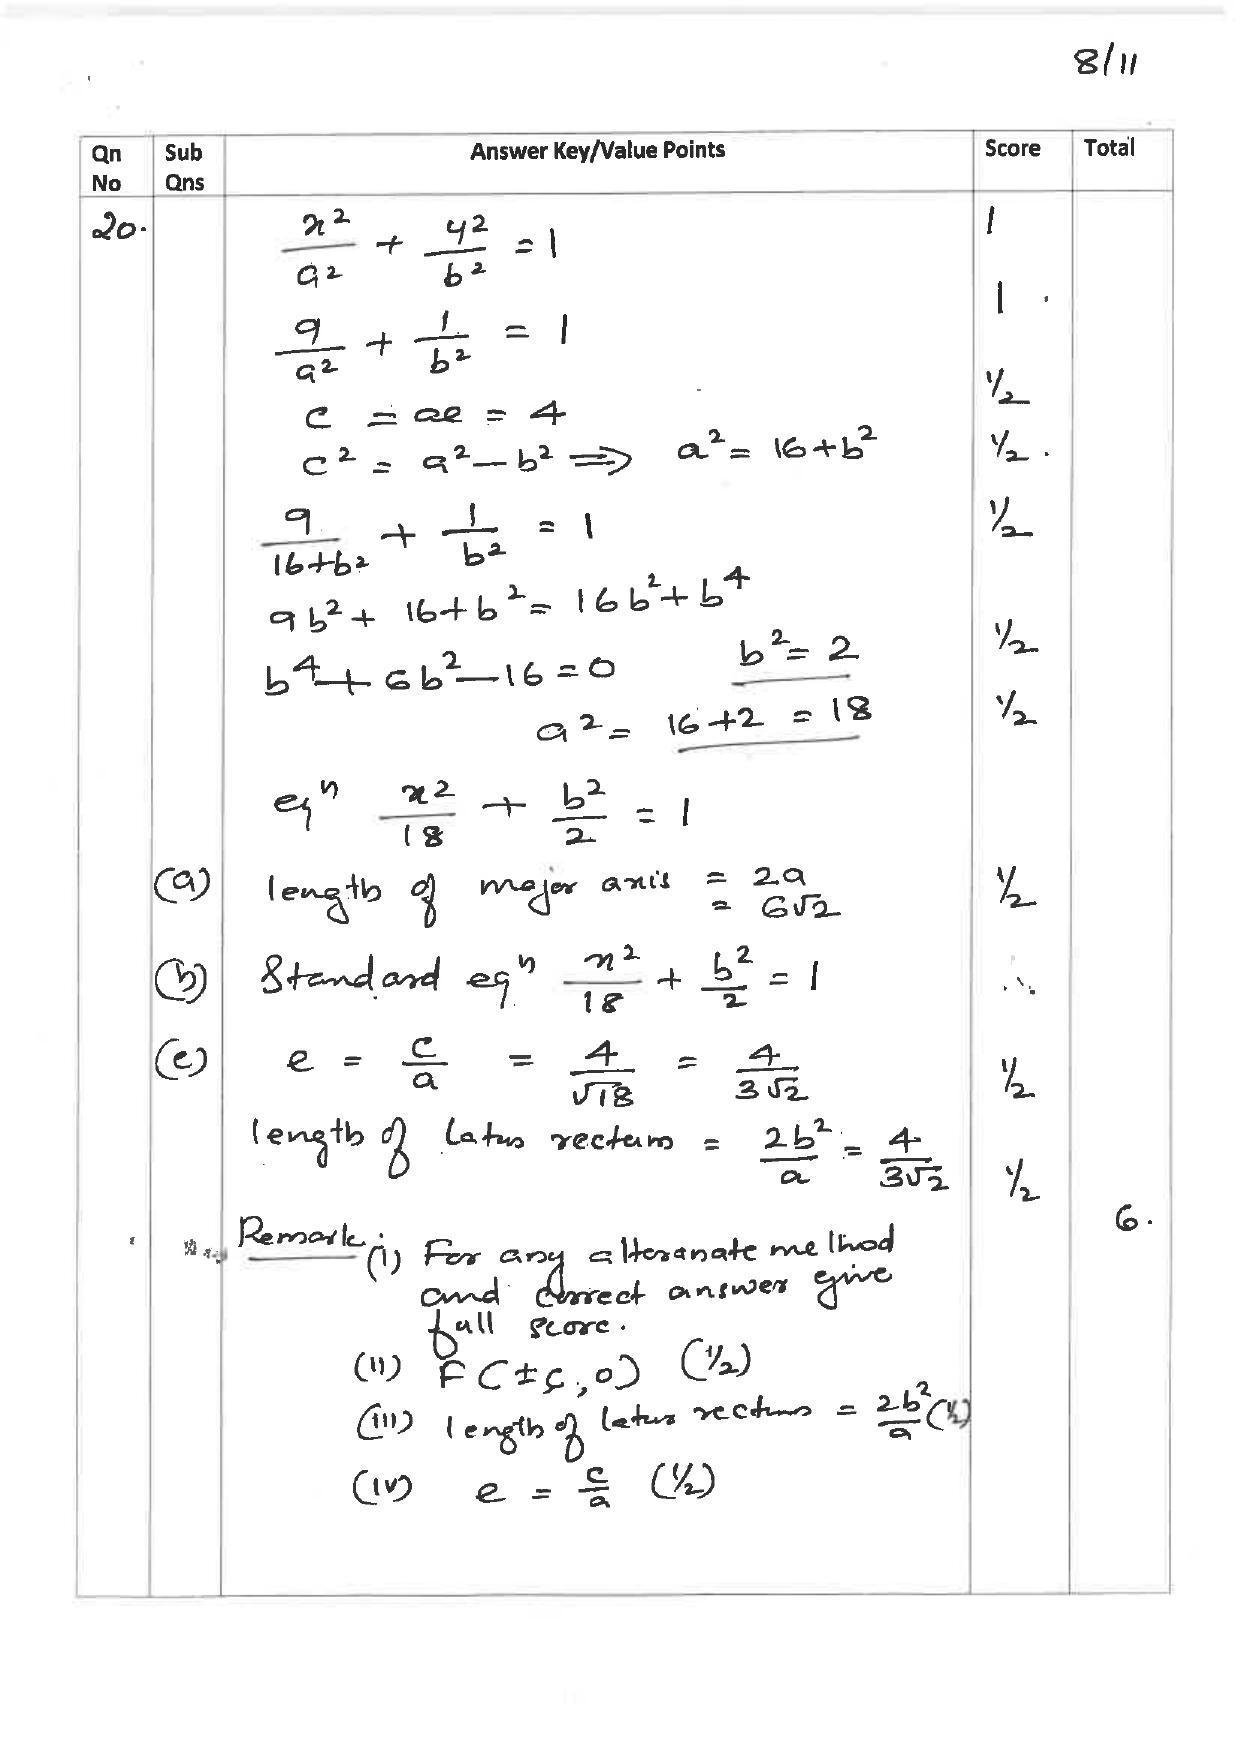 8/11
Qn No Sub Qns Answer Key/Value Points Score Total
20. x²/a² + y²/b² = 1 1
9/a² + 1/b² = 1 1
c = ae = 4 ½
c² = a² – b² ⟹ a² = 16+b² ½
9/16+b² + 1/b² = 1 ½
9b² + 16+b² = 16b² + b⁴
b⁴ + 6b² – 16 = 0 b² = 2 ½
a² = 16+2 = 18 ½
eqⁿ x²/18 + b²/2 = 1
(a) length of major axis = 2a ½
= 6√2
(b) Standard eqⁿ x²/18 + b²/2 = 1
(c) e = c/a = 4/√18 = 4/3√2 ½
length of Latus rectum = 2b²/a = 4/3√2 ½
6.
Remark: (i) For any alternate method
and correct answer give
full score.
(ii) F(±c, 0) (½)
(iii) length of latus rectum = 2b²/a (½)
(iv) e = c/a (½)